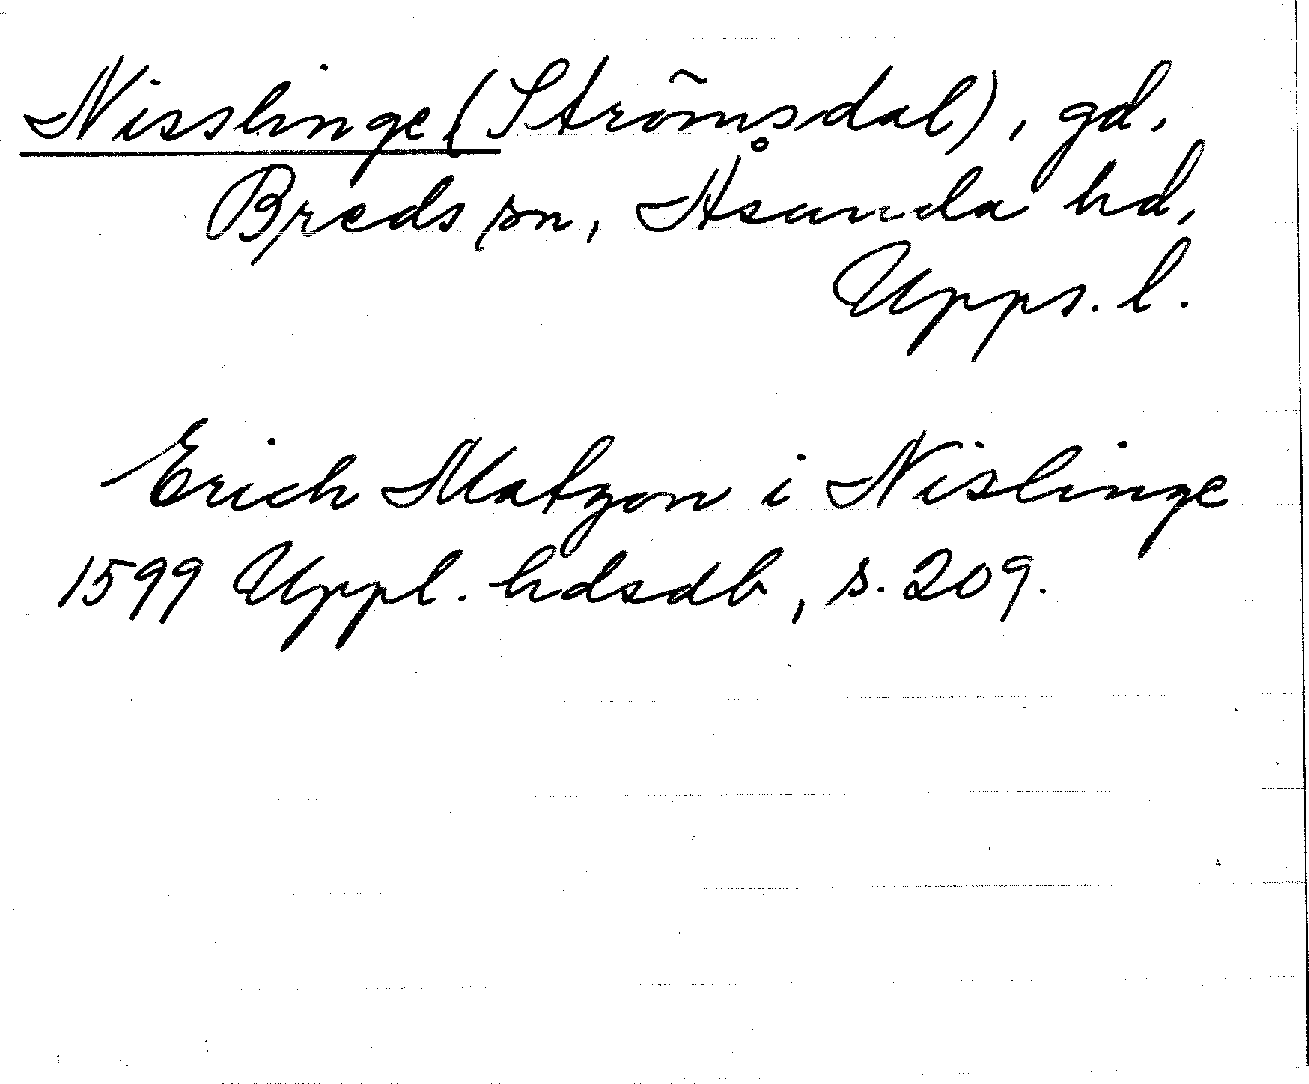 Nisslinge (Strömsdal), gd.
Breds sn, Åsunda hd,
Upps. l.
Erich Matzon i Nislinge
1599 Uppl. hdsdb, s. 209.